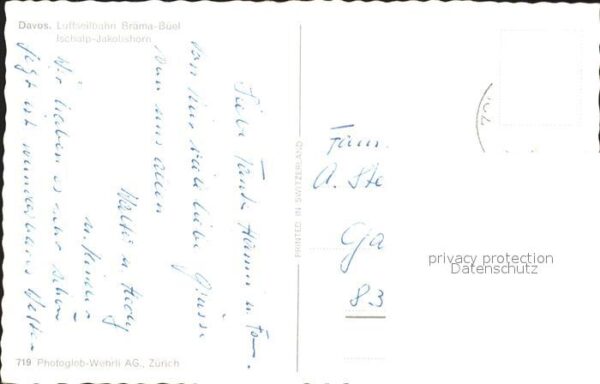 Davos. Luftseilbahn Bräma-Büel
Ischalp-Jakobshorn
Liebe Tante Hanni u. Fam.
viele liebe Grüsse
von uns allen
u. Kinder
Wir haben es sehr schön
jetzt ist wunderbares Wetter
PRINTED IN SWITZERLAND
Fam.
A. Ste
Gja
83
privacy protection
Datenschutz
719 Photoglob-Wehrli AG., Zürich